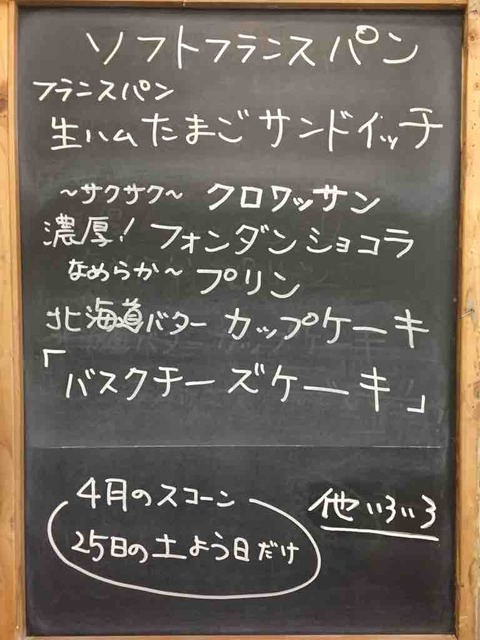 ソフトフランスパン
フランスパン
生ハムたまごサンドイッチ
～サクサク～ クロワッサン
濃厚！フォンダンショコラ
なめらか～ プリン
北海道バター カップケーキ
「バスクチーズケーキ」
4月のスコーン
25日の土よう日だけ
他いろいろ